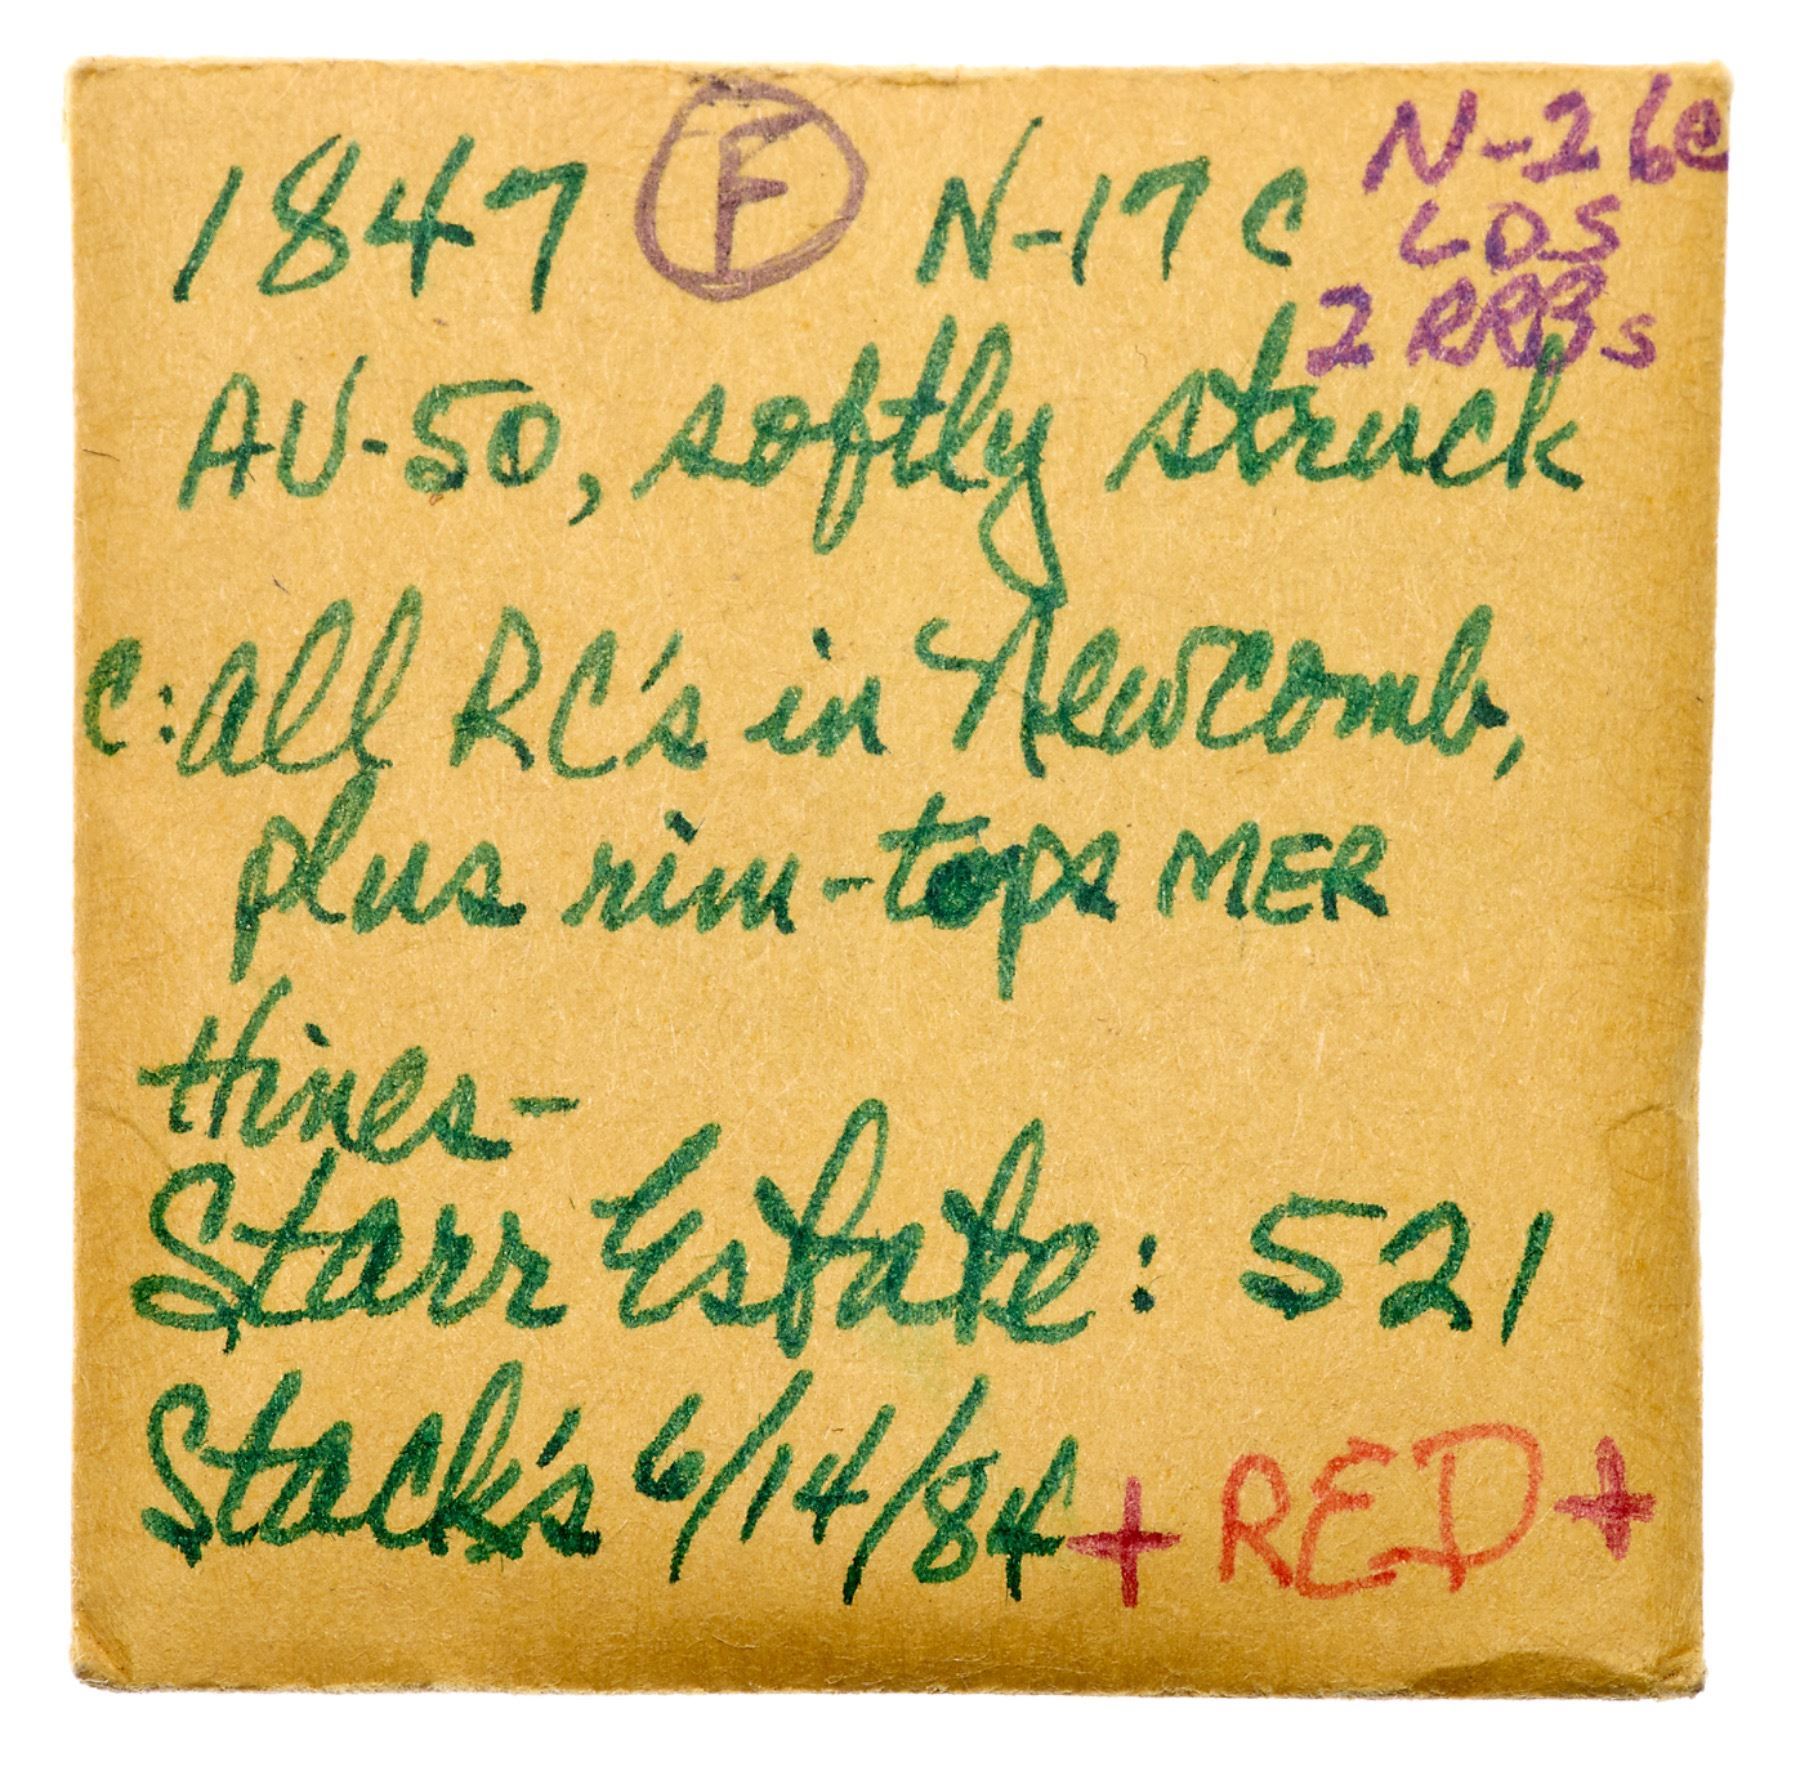 1847 F N-17 C N-26e
LDS
2 RRBs
AU-50, softly struck
C: all RC's in Newcomb,
plus rim-tops MER
Hines-
Starr Estate: 521
Stack's 6/14/84 + RED +